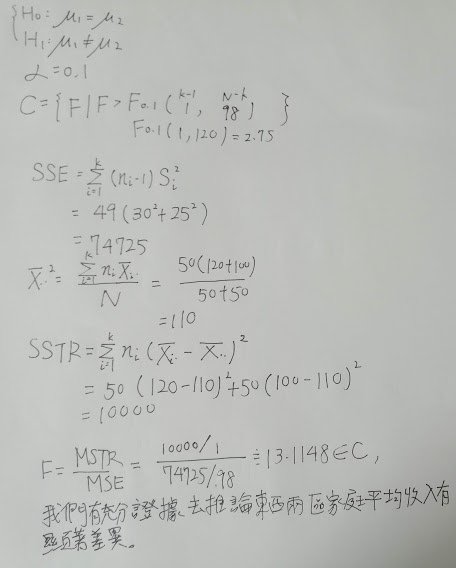 {H₀: μ₁ = μ₂
H₁: μ₁ ≠ μ₂
α = 0.1
C = {F | F > F₀.₁ (k-1 1, N-k 98) }
F₀.₁ (1, 120) = 2.75
SSE = Σᵢ₌₁ᵏ (nᵢ-1) Sᵢ²
= 49 (30² + 25²)
= 74725
X̄..² = Σᵢ₌₁ᵏ nᵢ X̄ᵢ. / N = 50(120+100) / 50+50
= 110
SSTR = Σᵢ₌₁ᵏ nᵢ (X̄ᵢ. - X̄..)²
= 50 (120-110)² + 50 (100-110)²
= 10000
F = MSTR / MSE = 10000/1 / 74725/98 ≒ 13.1148 ∈ C,
我們有充分證據去推論東西兩區家庭平均收入有
顯著差異。